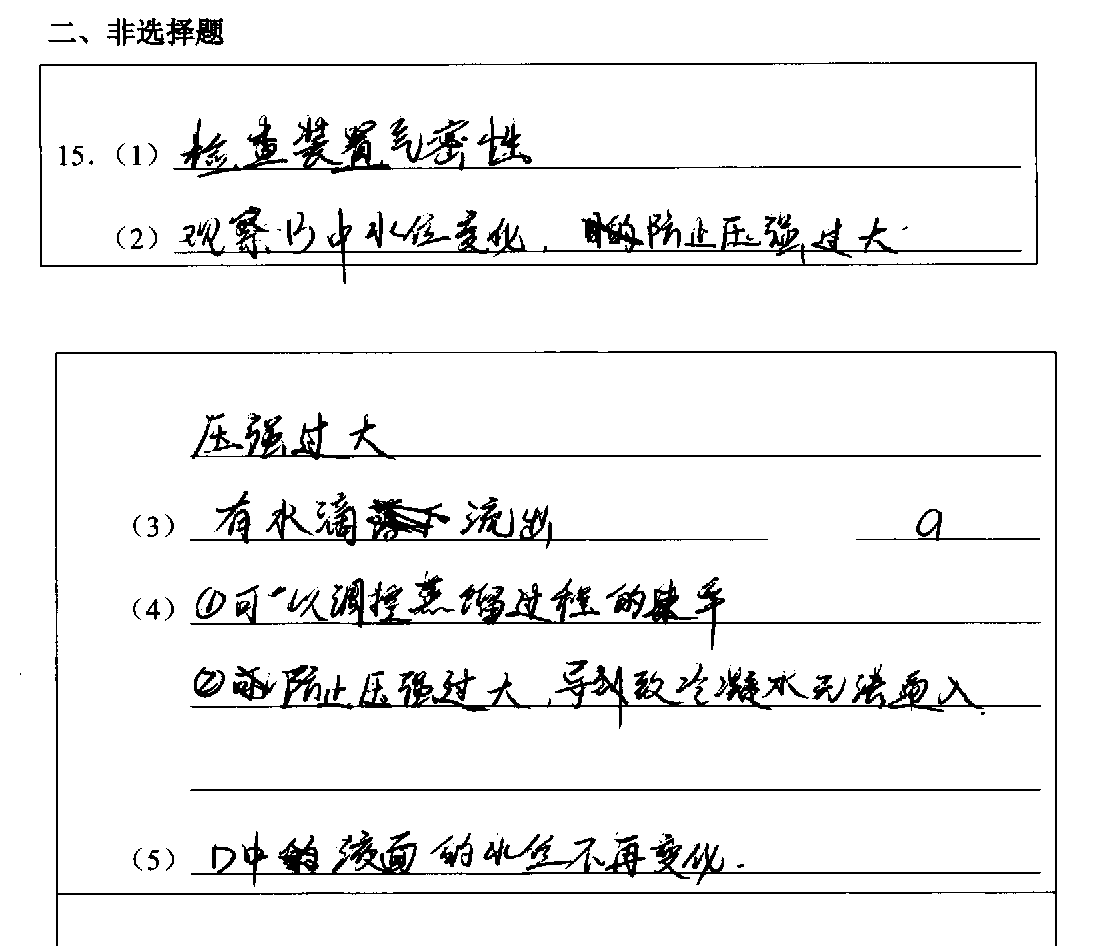 二、非选择题
15.（1）检查装置气密性
（2）观察B中水位变化，目的防止压强过大.
压强过大
（3）有水滴流出 a
（4）①可以调控蒸馏过程的速率
②防止压强过大，导致冷凝水无法通入.
（5）D中的液面的水位不再变化.